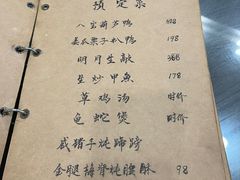 预定菜
八宝葫芦鸭 598
姜瓜栗子扒鸭 198
明月生敲 388
生炒甲鱼 178
草鸡汤 时价
龟蛇煲 时价
咸猪手炖蹄膀
金腿梅脊炖腰酥 98